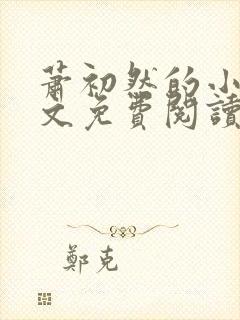 蕭初然的小
文免費閱讀
鄭克